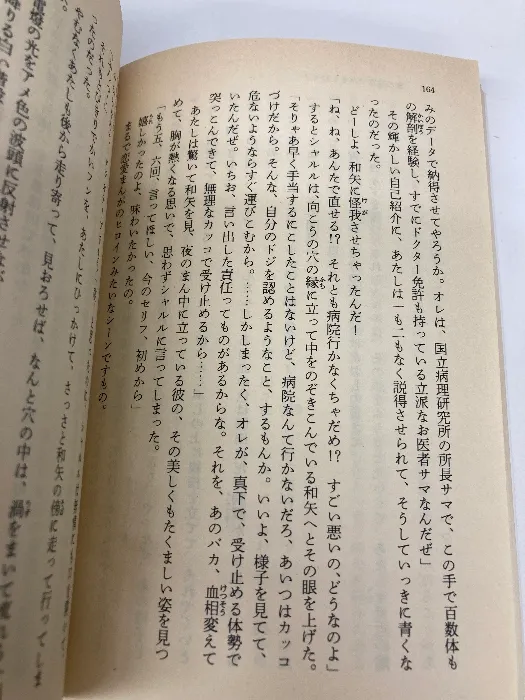 164
みのデータで納得させてやろうか。オレは、国立病理研究所の所長サマで、この手で百数体も
の解剖を経験し、すでにドクター免許も持っている立派なお医者サマなんだぜ」
その輝かしい自己紹介に、あたしは一も二もなく説得させられて、そうしていっきに青くな
ったのだった。
どーしよ、和矢に怪我させちゃったんだ!
「ね、ね、あんたで直せる!? それとも病院行かなくちゃだめ!? すごい悪いの、どうなのよ」
するとシャルルは、向こうの穴の縁に立って中をのぞきこんでいる和矢へとその眼を上げた。
「そりゃあ早く手当するにこしたことはないけど、病院なんて行かないだろ、あいつはカッコ
づけだから。そんな、自分のドジを認めるようなこと、するもんか。いいよ、様子を見てて、
危ないようならすぐ運びこむから。……しかしまったく、オレが、真下で、受け止める体勢で
いたんだぜ。いちお、言い出した責任ってものがあるからな。それを、あのバカ、血相変えて
突っこんできて、無理なカッコで受け止めるから……」
あたしは驚いて和矢を見、夜のまん中に立っている彼の、その美しくもたくましい姿を見つ
めて、胸が熱くなる思いで、思わずシャルルに言ってしまった。
「もう五、六回、言ってほしい、今のセリフ、初めから」
嬉しかったのよ、味わいたかったの。
まるで恋愛まんがのヒロインみたいなシーンですもの。
あたしにひっかけて、さっさと和矢の傍に走って行ってしま
ったのだった。
やむなくあたしも後から走り寄って、見おろせば、なんと穴の中は、渦をまいて
の光をアメ色の波頭に反射させ